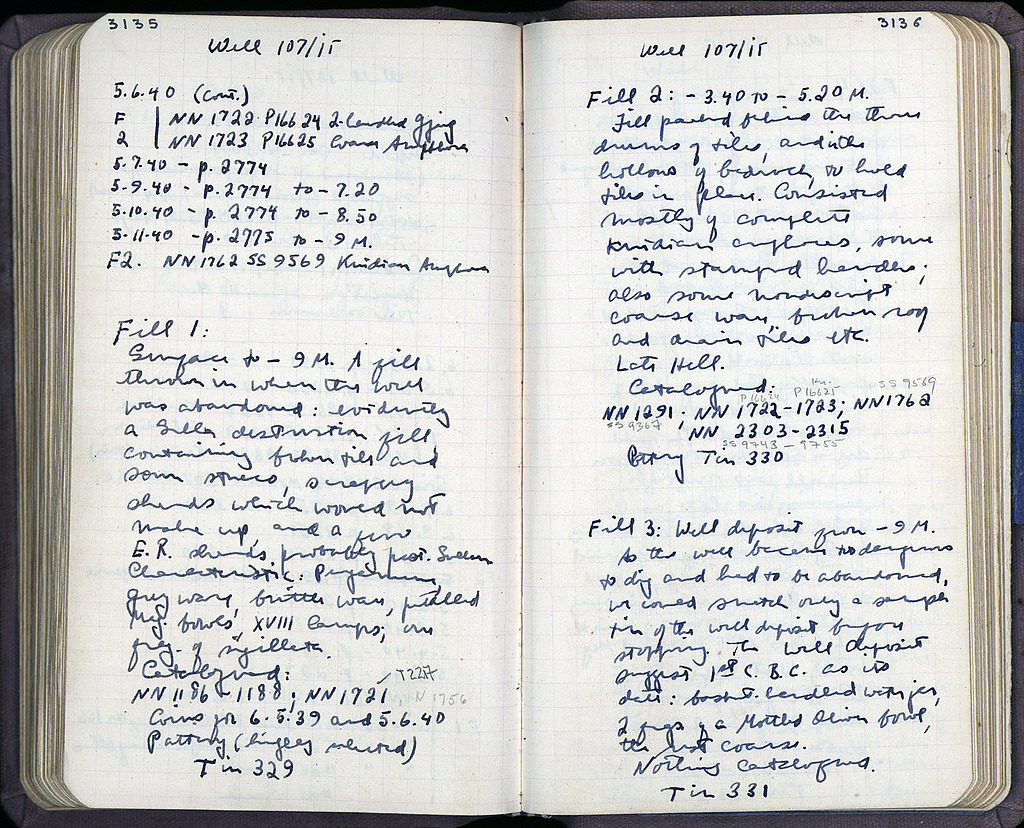 3135
Well 107/ΙΓ
5.6.40 (cont.)
F | NN 1722 P16624 2-handled
2 | NN 1723 P16625 Coarse Amphora
5.7.40 - p. 2774
5.9.40 - p. 2774 to - 7.20
5.10.40 - p. 2774 to - 8.50
5.11.40 - p. 2775 to - 9 M.
F2. NN 1762 SS 9569 Knidian Amphora
Fill 1:
Surface to - 9 M. A fill
thrown in when the well
was abandoned: evidently
a Sulla destruction fill
containing broken tiles and
some stones, scrappy
sherds which would not
make up, and a few
E.R. sherds probably post-Sullan
Characteristic: Pergamene,
grey ware, brittle ware,
Meg. bowls, XVIII lamps; one
frag. of sigillata.
Catalogued: T2217
NN 1186-1188; NN 1721, N 1756
Coins for 6.5.39 and 5.6.40
Pottery (largely selected)
Tin 329
3136
Well 107/ΙΓ
Fill 2: - 3.40 to - 5.20 M.
Fill packed behind the three
drums of tiles, and in the
hollows of bedrock, to hold
tiles in place. Consisted
mostly of complete
Knidian amphoras, some
with stamped handles;
also some nondescript
coarse ware, broken roof
and drain tiles etc.
Late Hell.
Catalogued: Kn.
P16624 P16625 SS 9569
NN 1291; NN 1722-1723; NN 1762
SS 9367 NN 2303-2315
SS 9743 - 9755
Pottery Tin 330
Fill 3: Well deposit from - 9 M.
As the well became too dangerous
to dig and had to be abandoned,
we could snatch only a sample
tin of the well deposit before
stopping. The well deposit
suggest 1st C. B.C. as its
date: basket handled water jar,
2 frags of a Mottled Olive bowl,
the rest coarse.
Nothing catalogued.
Tin 331